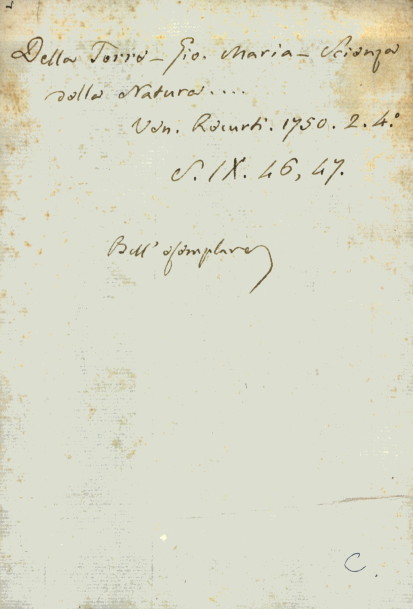 Della Torre - Gio. Maria - Scienza
della Natura....
Ven. Recurti. 1750. 2. 4.º
S. IX. 46, 47.
Bell' esemplare
C.